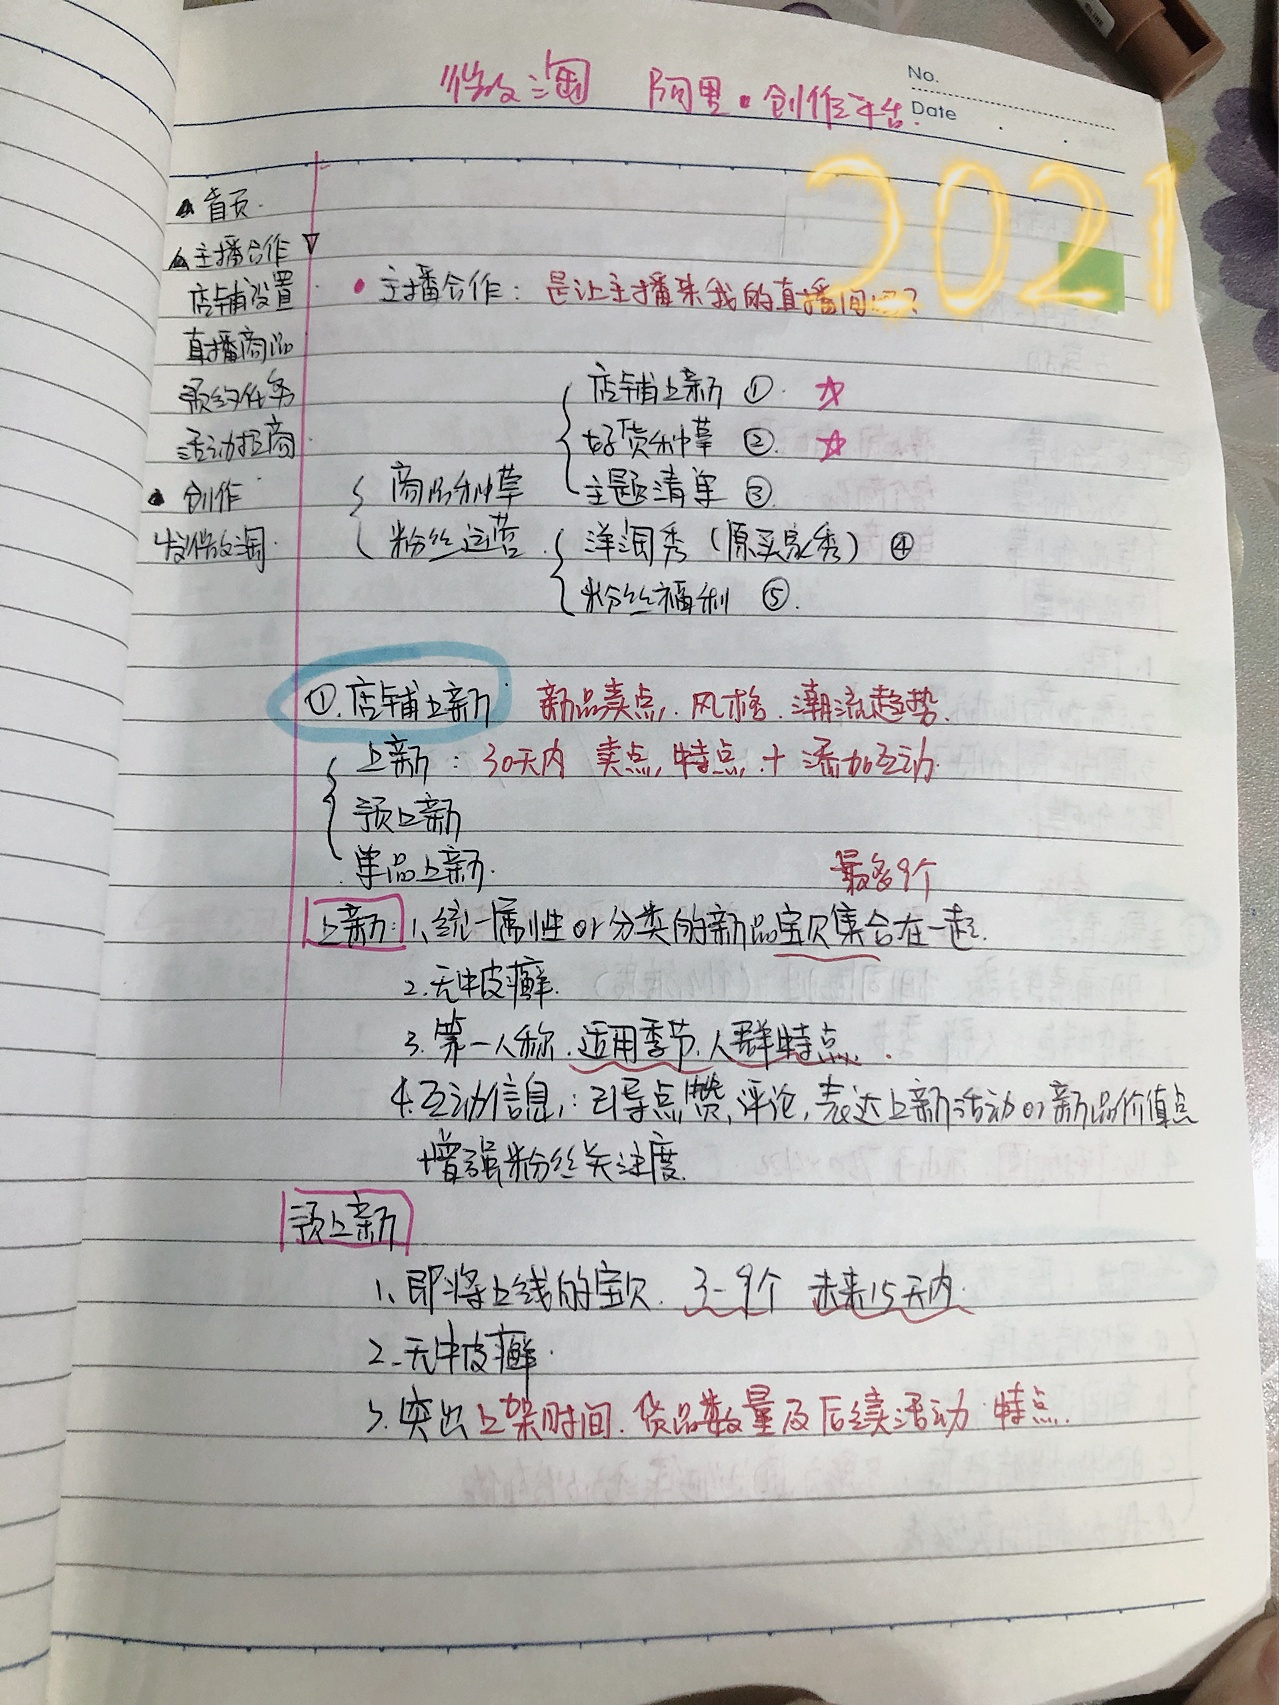 微淘 阿里·创作平台
No.
Date
2021
▲首页
▲主播合作
店铺设置
直播商品
预约任务
活动招商
▲创作
发微淘
• 主播合作：是让主播来我的直播间吗？
店铺上新 ① ☆
好货种草 ② ☆
主题清单 ③
商品种草
粉丝运营
洋淘秀（原买家秀）④
粉丝福利 ⑤
①.店铺上新 新品卖点.风格.潮流趋势.
上新：30天内 卖点,特点,+添加互动
预上新
单品上新.
最多9个
上新：1、统一属性or分类的新品宝贝集合在一起.
2.无牛皮癣.
3.第一人称.适用季节.人群特点.
4.互动信息：引导点赞,评论,表达上新活动or新品价值点
增强粉丝关注度.
预上新
1、即将上线的宝贝. 3-9个 未来15天内.
2.无牛皮癣.
3.突出上架时间.货品数量及后续活动 特点.